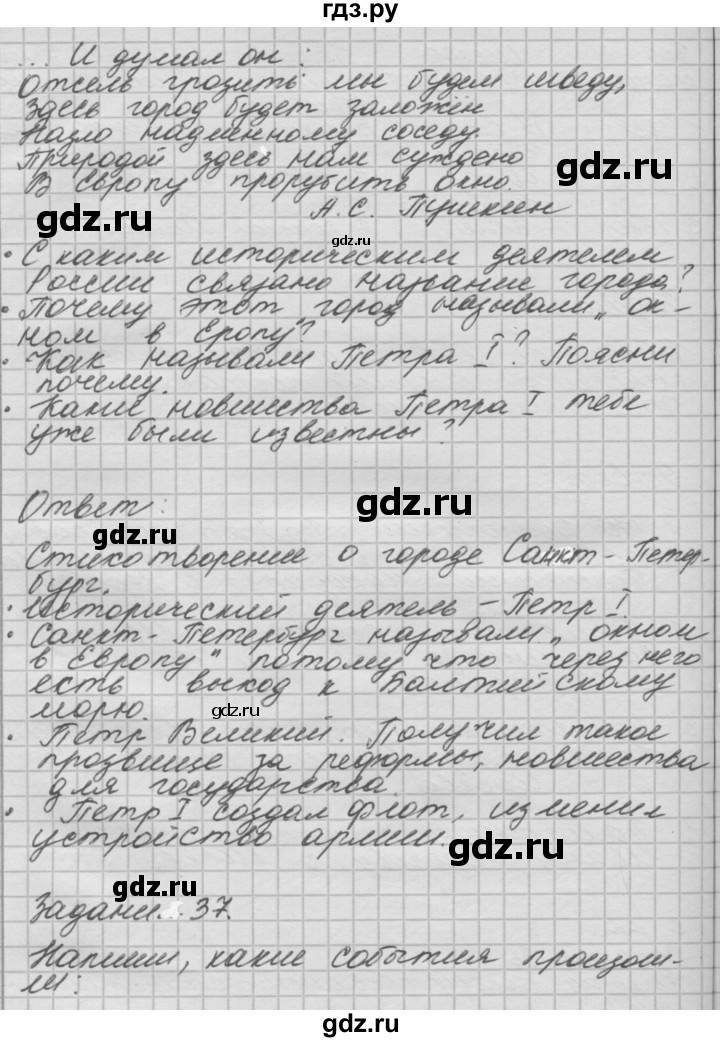 гдз.ру
... И думал он:
Отсель грозить мы будем шведу,
Здесь город будет заложён
Назло надменному соседу.
Природой здесь нам суждено
gdz.ru
В Европу прорубить окно.
gdz.ru
А.С. Пушкин
gdz.ru
• С каким историческим деятелем
России связано название города?
• Почему этот город называли „ок-
ном в Еропу"?
gdz.ru
gdz.ru
• Как называли Петра I? Поясни
почему.
• Какие новшества Петра I тебе
уже были известны?
Ответ:
gdz.ru
gdz.ru
Стихотворение о городе Санкт-Петер-
бург.
• Исторический деятель – Петр I
• Санкт-Петербург называли „окном
в Европу" потому что через него
есть выход к Балтийскому
морю.
gdz.ru
gdz.ru
• Петр Великий. Получил такое
прозвище за реформы, новшества
для государства.
• Петр I создал флот, изменил
устройство армии.
gdz.ru
gdz.ru
Задани 37.
Напиши, какие события произош-
ли:
gdz.ru
gdz.ru